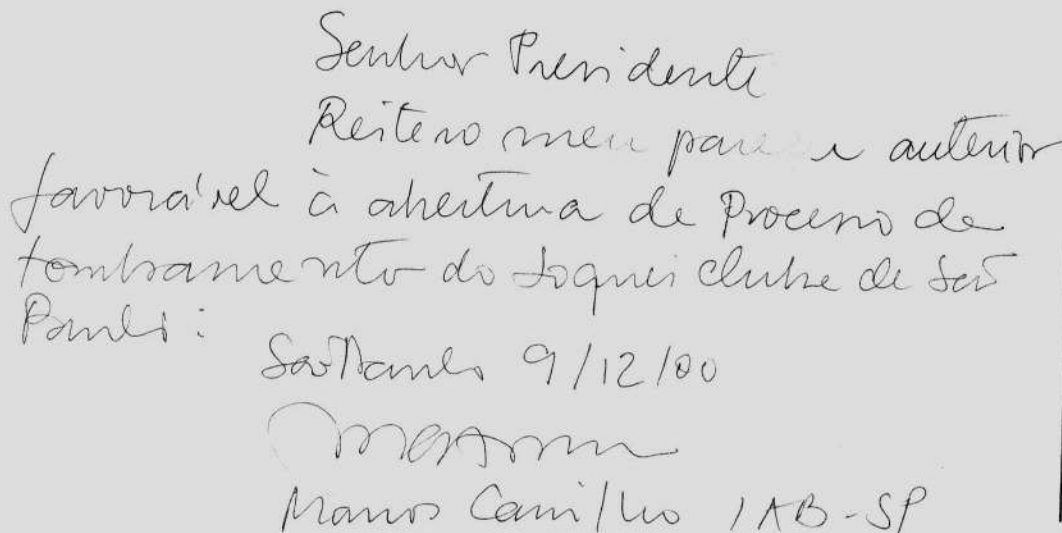 Senhor Presidente
Reitero meu parecer anterior
favorável à abertura de Processo de
tombamento do Joquei Clube de São
Paulo:
São Paulo 9/12/00
IAB-SP